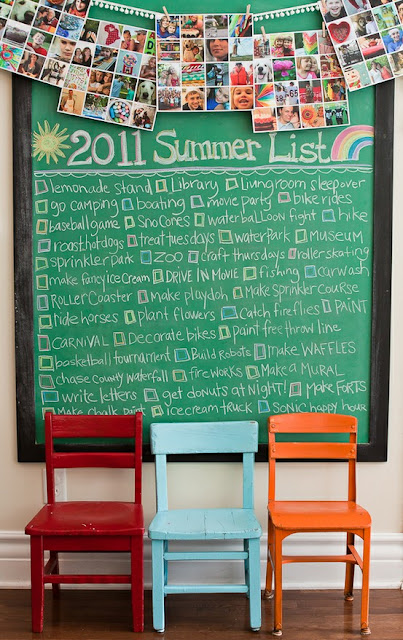 2011 Summer List
lemonade stand Library livingroom sleepover
go camping boating movie party bike rides
baseball game Sno Cones water balloon fight hike
roast hot dogs treat tuesdays water park MUSEUM
sprinkler park ZOO craft thursdays roller skating
make fancy ice Cream DRIVE IN MOVIE fishing carwash
Roller Coaster Make playdoh Make Sprinkler Course
ride horses plant flowers Catch fireflies PAINT
CARNIVAL Decorate bikes paint free throw line
basketball tournament Build Robots make WAFFLES
chase county waterfall fireworks Make a MURAL
write letters get donuts at NIGHT! Make FORTS
Make chalk paint ice cream truck SONIC happy hour